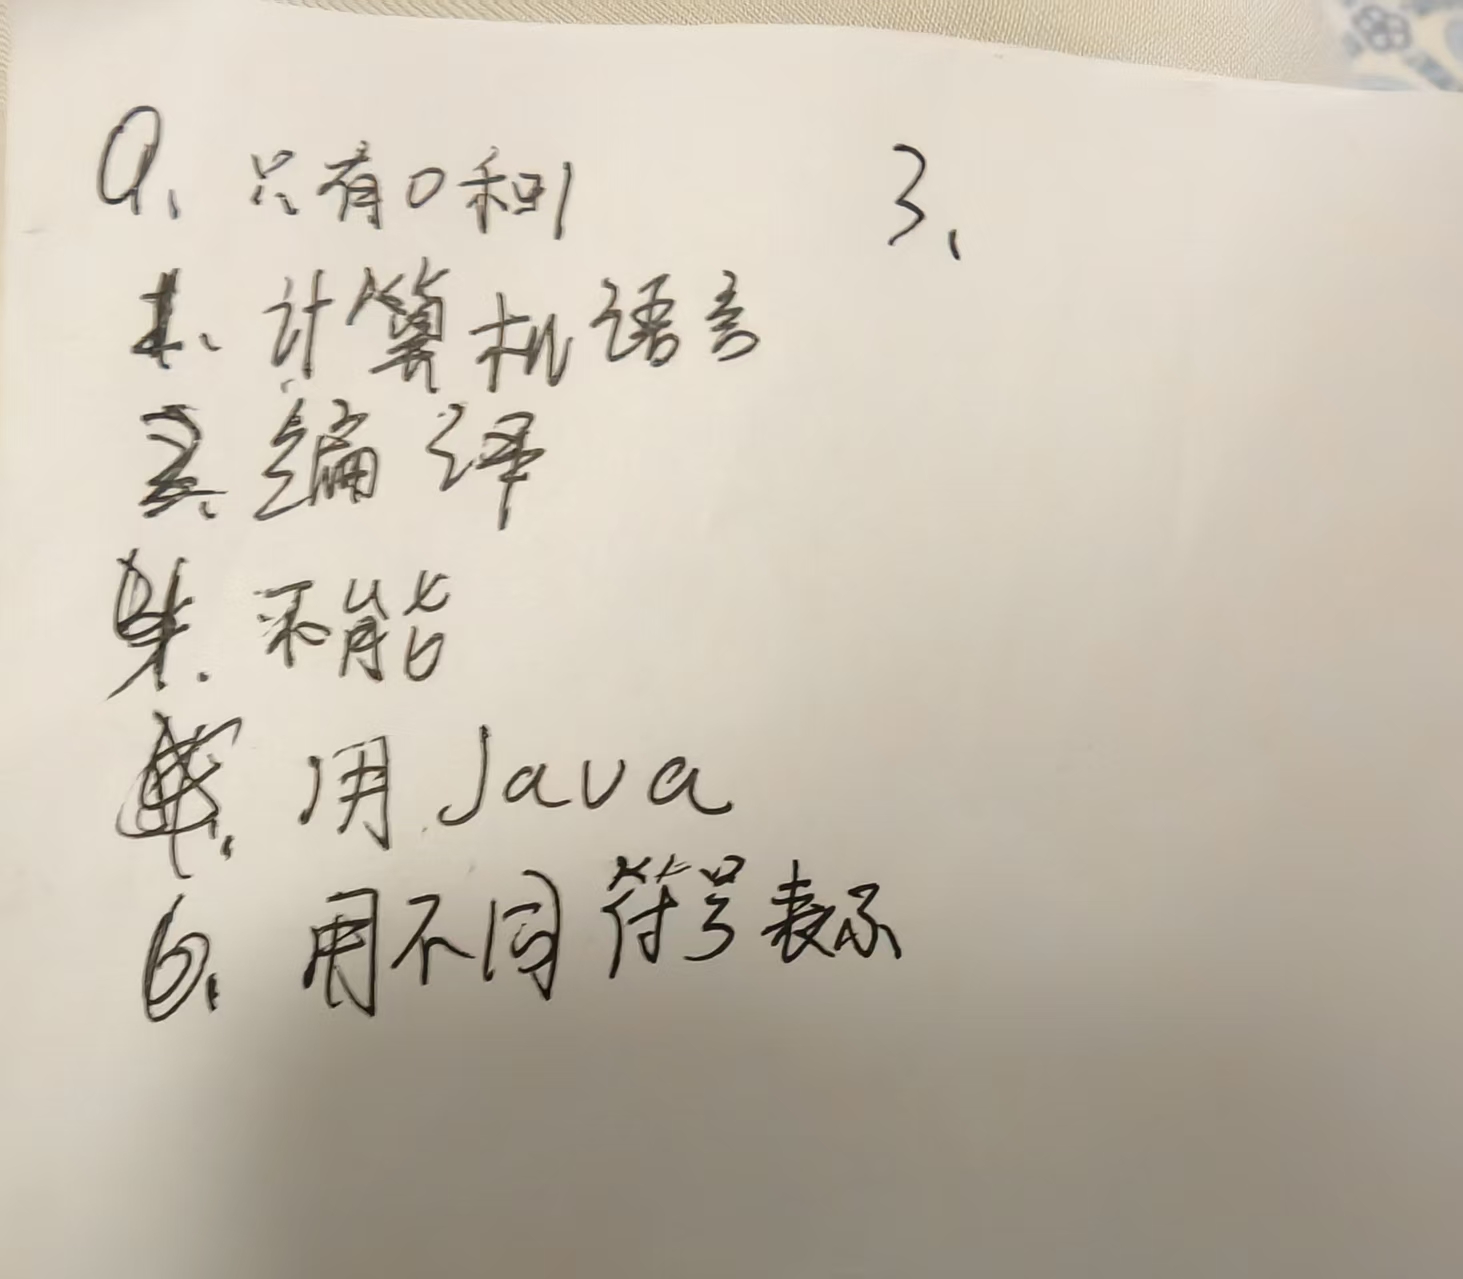 a、只有0和1
1、计算机语言
2、编译
不能
用Java
6、用不同符号表示
3、